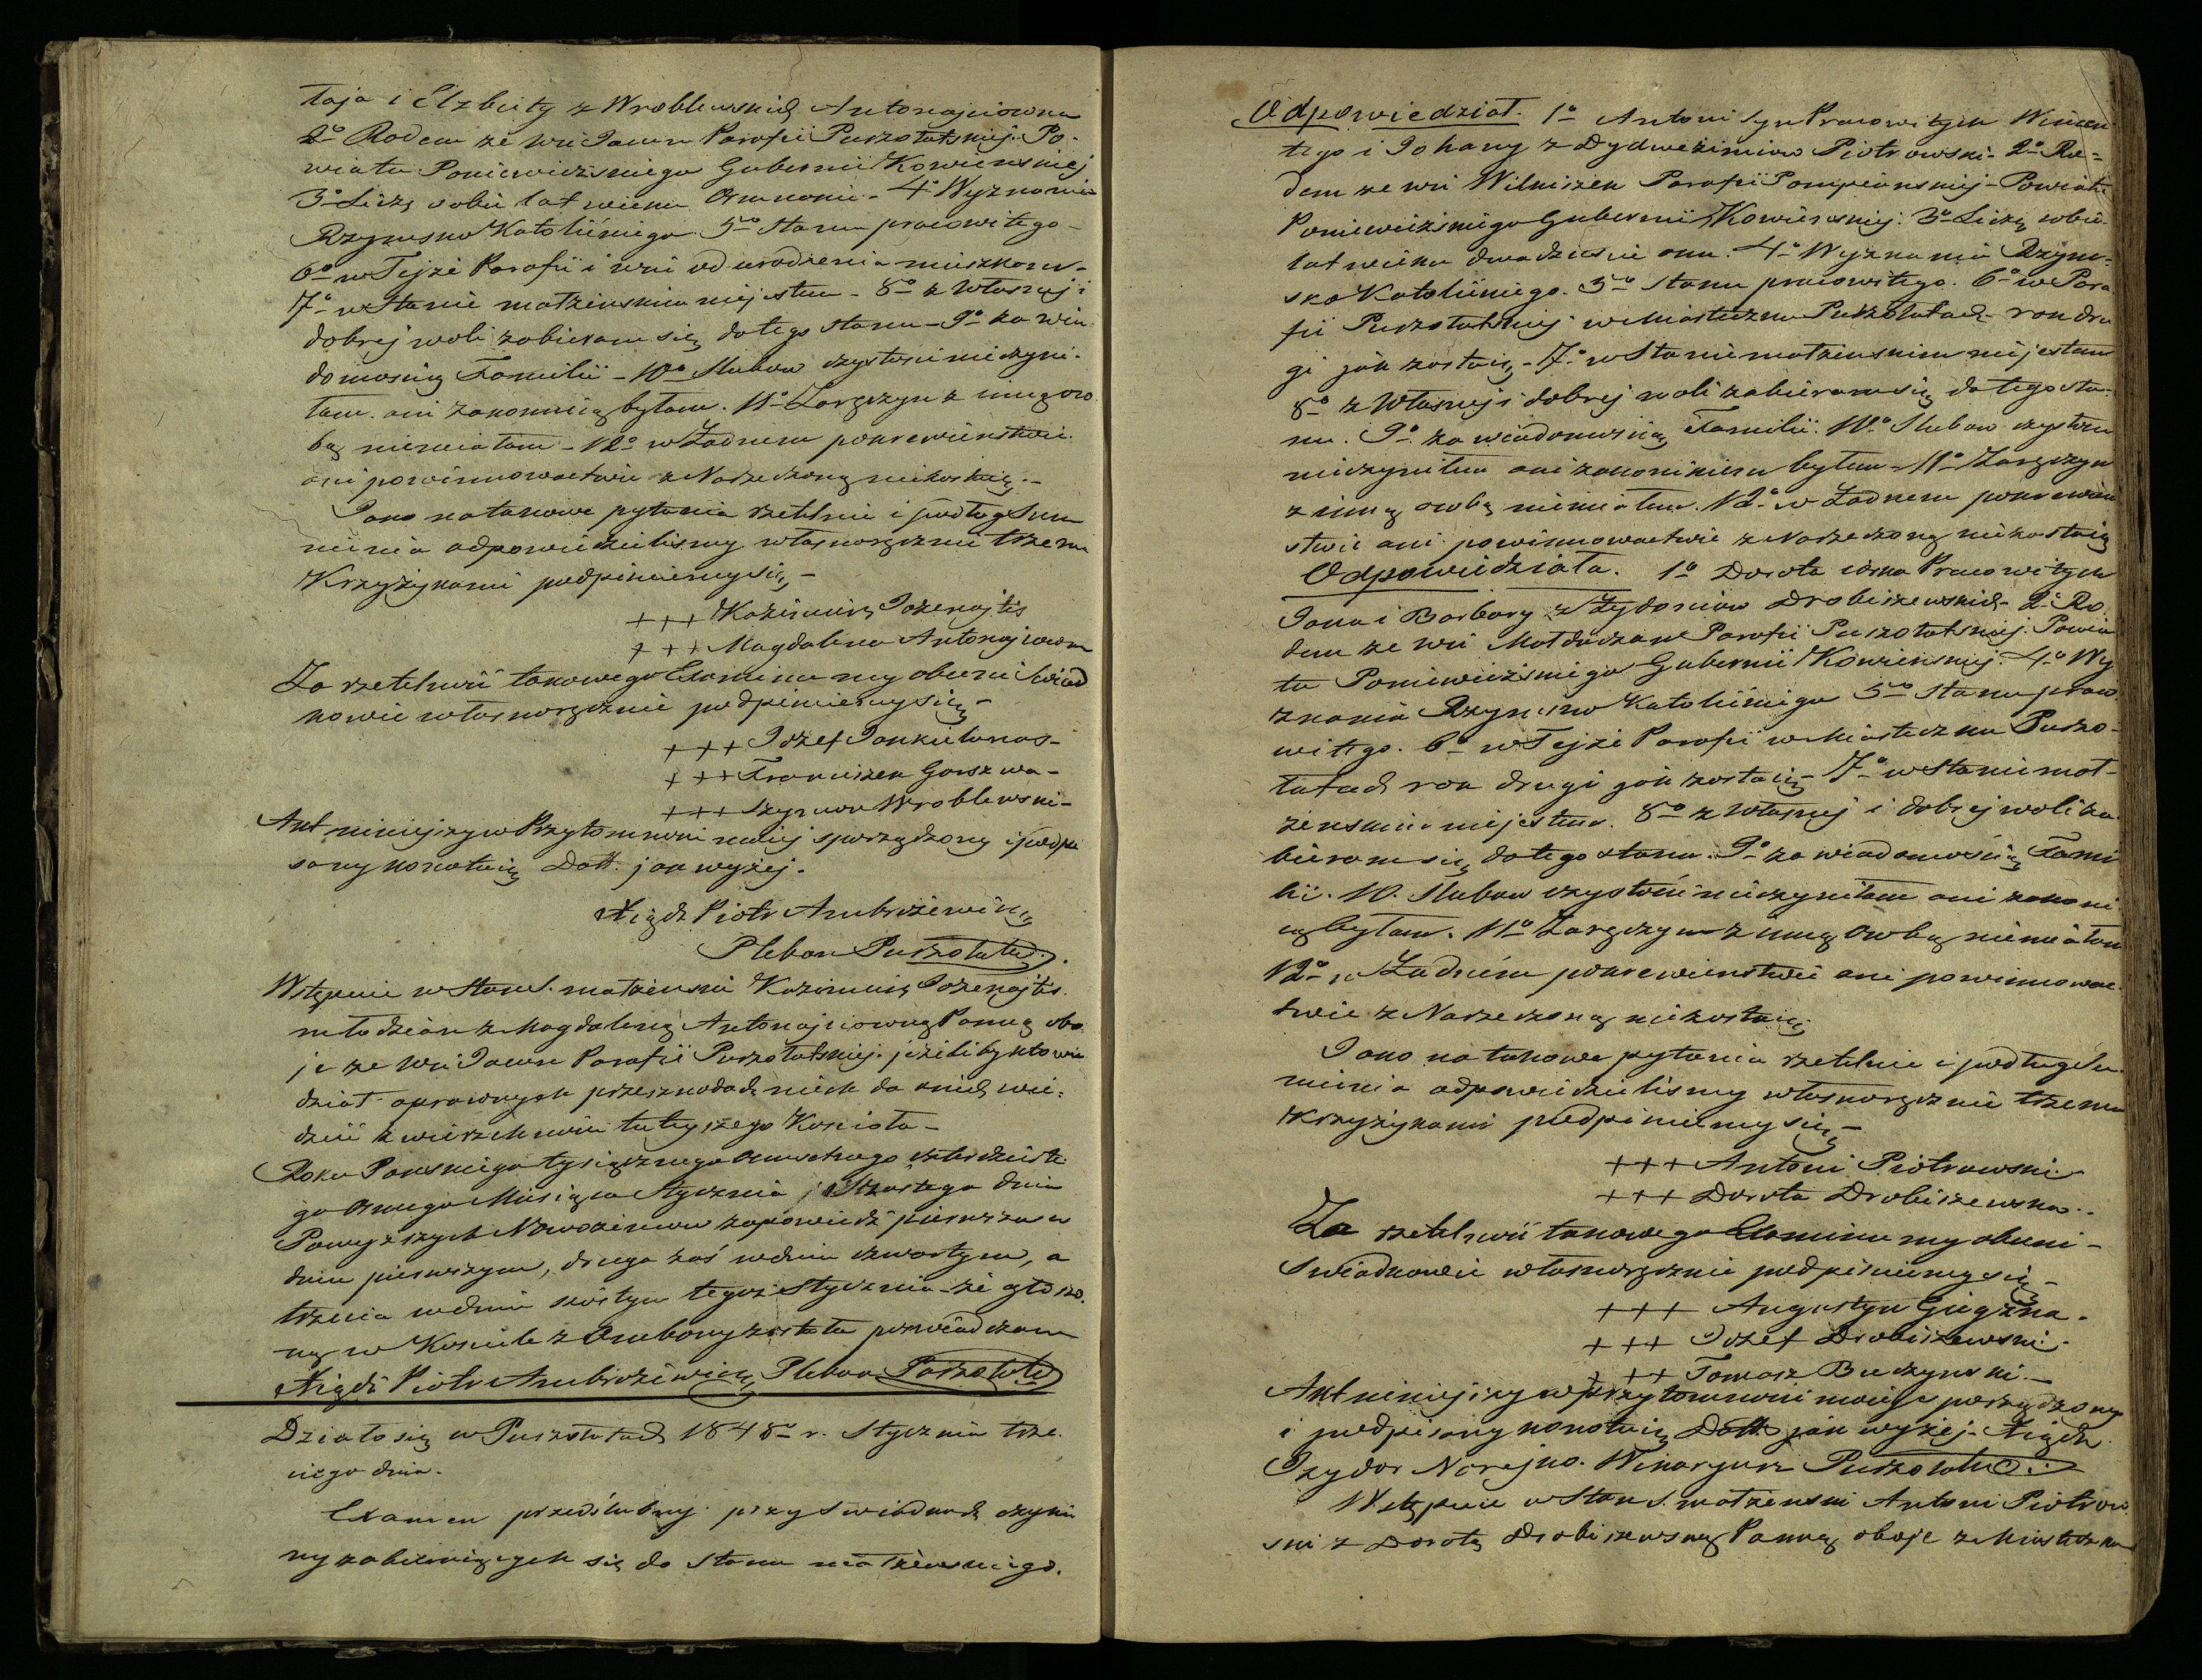 łaja i Elzbiety z Wroblewskich Antonajciowna
2o Rodem ze wsi Jawn Parafii Puszołatskiej. Po-
wiatu Poniewiezskiego Gubernii Kowienskiej
3o Liczę sobie lat wieku Osmnaście - 4o Wyznania
Rzymsko Katolickiego 5to Stanu pracowitego -
6o w Tejże Parafii i wsi od urodzenia mieszkam -
7o w Stanie małżenskim niejestem - 8o z Własnej i
dobrej woli zabieram się do tego stanu - 9o za wia
domoscią Familii - 10o Slubow czystosci nieczyni-
łam ani zakonnicą byłam. 11o Zaręczyn z inną oso
bą niemiałam - 12o w Żadnem pokrewienstwie
ani powinnowactwie z Narzeczoną niezostaię. -
Jako na takowe pytania rzetelnie i podług Sum
nienia odpowiedzieliśmy własnoręcznie trzema
Krzyżykami podpisuiemy się -
+++ Kaźimierz Jozenajtis
+++ Magdalena Antonajciowna
Za rzetelność takowego Examinu my obecni Swiad
kowie własnoręcznie podpisuiemy się -
+++ Jozef Jankielunas -
+++ Franciszek Garszwa -
+++ Szymon Wroblewski -
Akt niniejszy w Przytomności mojej sporządzony i podpi
sany konotuię Datt. jak wyżej.
Xiądz Piotr Ambrożewicz
Pleban Puszołatski.
Wstępuie w Stan S. małżenski Kazimierz Jozenajtis
młodzian z Magdaleną Antonajciowną Panną obo
je ze wsi Jawn Parafii Puszołatskiej. jeżeliby kto wie
dział o prawnych przeszkodach niech da o nich wie-
dzieć zwierzchności tutejszego Kościoła -
Roku Panskiego tysiącznego Osmsetnego czterdzieste
go Osmego Miesiąca Stycznia Szostego dnia
Powyższych Nowożencow zapowiedź pierwsza w
dniu pierwszym, druga zaś w dniu czwartym, a
trzecia w dniu szóstym tegoż Stycznia - że głoszo
ną w Kosciele z Ambony została poswiadczam
Xiądz Piotr Ambrożewicz Pleban Puszołatski
Działo się w Puszołatach 1848o r. Stycznia trze
ciego dnia.
Examen przedślubny przy Swiadkach czynio
ny zabieraiących się do Stanu małżenskiego.
Odpowiedział. 1o Antoni Syn Pracowitych Wincen
tego i Johany z Dydweżimiow Piotrowski - 2o Ro=
dem ze wsi Wilniszek Parafii Pompianskiej - Powiatu
Poniewiezskiego Gubernii Kowienskiej. 3o Liczę sobie
lat wieku dwadziescie osm. 4o Wyznania Rzym=
sko Katolickiego. 5to Stanu pracowitego. 6o w Para
fii Puszołatskiej w Miasteczku Puszołatach rok dru
gi jak zostaię - 7o w Stanie małżenskim niejestem
8o z Własnej i dobrej woli zabieram się do tego sta-
nu. 9o za wiadomoscią Familii. 10o Slubow czystosci
nieczyniłem ani zakonnikiem byłem - 11o Zaręczyn
z inną osobą niemiałem. 12o w Żadnem pokrewien
stwie ani powinnowactwie z Narzeczoną niezostaię
Odpowiedziała. 1o Dorota corka Pracowitych
Jana i Barbary z Żydoniow Drobiszewskich - 2o Ro
dem ze wsi Parafii Puszołatskiej. Powia
tu Poniewiezskiego Gubernii Kowienskiej. 4o Wy
znania Rzymsko Katolickiego 5to Stanu praco
witego. 6o w Tejże Parafii w Miasteczku Puszo-
łatach rok drugi jak zostaię - 7o w Stanie mał-
żenskim niejestem. 8o z własnej i dobrej woli za
bieram się do tego stanu. 9o za wiadomoscią Fami
lii. 10. Slubow czystości nieczyniłam ani zakonni
cą byłam. 11o Zaręczyn z inną osobą niemiałam
12o w Żadném pokrewienstwie ani powinnowac
twie z Narzeczoną niezostaię.
Jako na takowe pytania rzetelnie i podług Su
mienia odpowiedzieliśmy własnoręcznie trzema
Krzyżykami podpisuiemy się -
+++ Antoni Piotrowski
+++ Dorota Drobiszewska -
Za rzetelność takowego Examinu my obecni -
Swiadkowie własnoręcznie podpisuiemy się -
+++ Augustyn Giegżna -
+++ Jozef Drobiszewski -
+++ Tomasz Buczynski. -
Akt niniejszy w przytomności mojej sporządzony
i podpisany konotuię Datt. jak wyżej - Xiądz
Izydor Narejko. Wikaryusz Puszołatski
Wstępuie w Stan S. małżenski Antoni Piotrow
ski z Dorotą Drobiszewską Panną oboje z Miasteczka